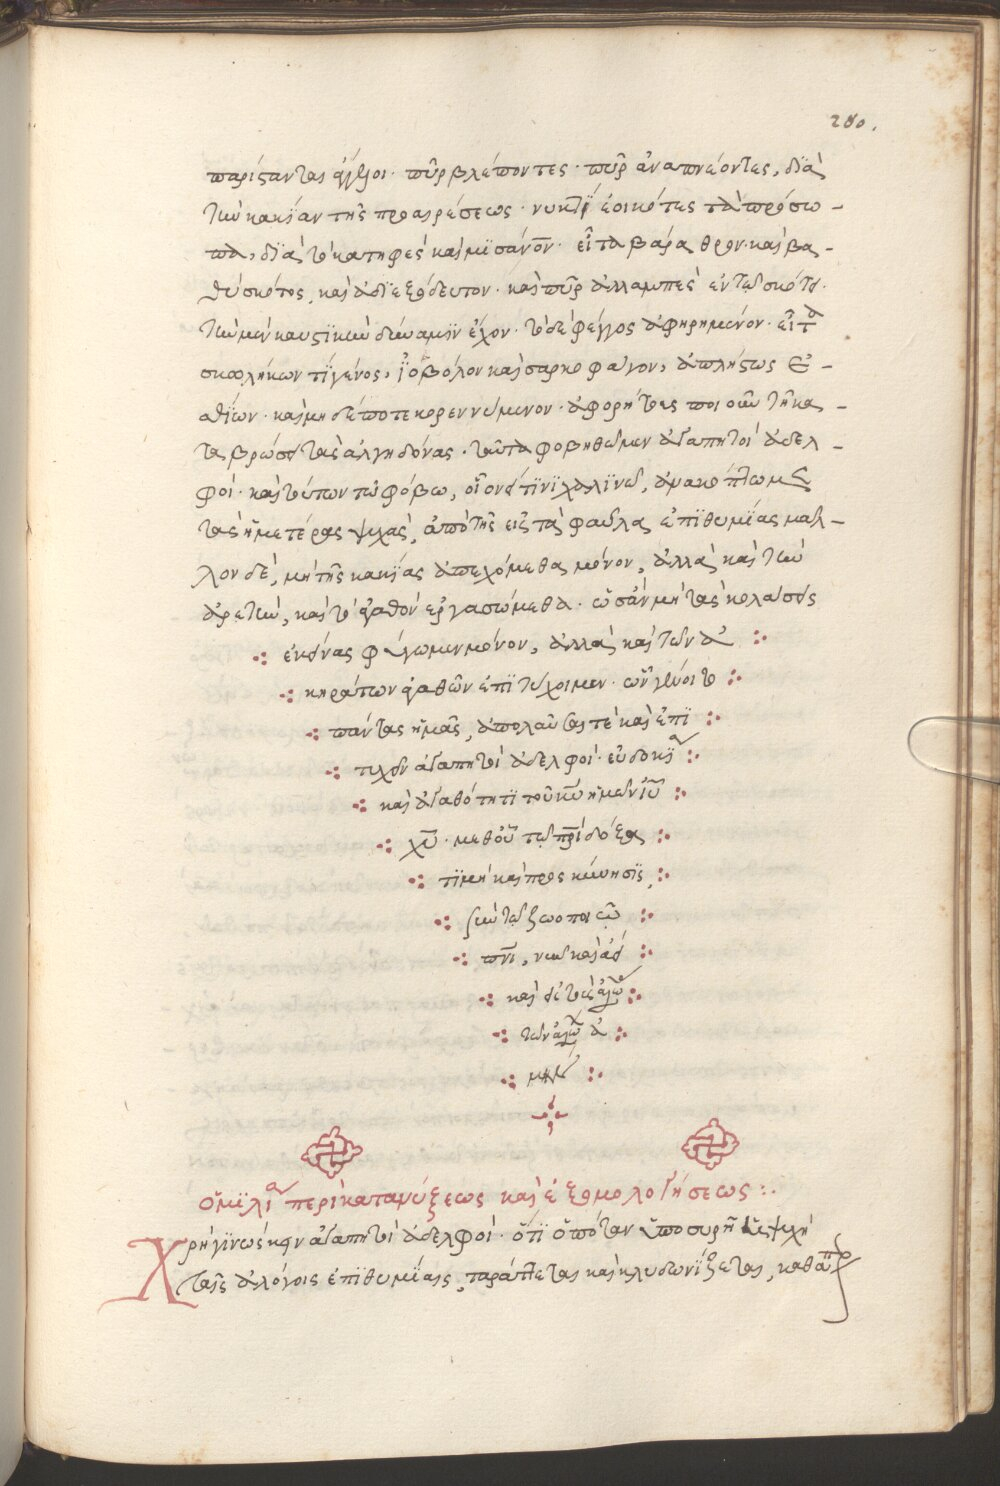 280.
παρίστανται ἄγγελοι· πῦρ βλέποντες· πῦρ ἀναπνέοντες, διὰ
τὴν κακίαν τῆς προαιρέσεως· νυκτὶ ἐοικότες τὰ πρόσω-
πα, διὰ τὸ κατηφὲς καὶ μισάνον· εἶτα βάραθρον· καὶ βα-
θὺ σκότος, καὶ ἀδιεξόδευτον· καὶ πῦρ ἀλλαμπὲς ἐν τῶ σκότει·
τὴν μὲν καυστικὴν δύναμιν ἔχον· τὸ δὲ φέγγος ἀφηρημένον· εἶτα
σκωλήκων τι γένος, ἰοβόλον καὶ σαρκοφάγον, ἀπλήστως ἐ-
σθίων· καὶ μηδέποτε κορεννύμενον· ἀφορήτους ποιοῦν τῆ κα-
ταβρώσει τὰς ἀλγηδόνας· ταῦτα φοβηθῶμεν ἀγαπητοὶ ἀδελ-
φοί· καὶ τούτων τῶ φόβω, οἷονεί τινι χαλινῶ, ἀνακόπτωμεν
τὰς ἡμετέρας ψυχὰς, ἀπὸ τῆς εἰς τὰ φαῦλα ἐπιθυμίας μαλ-
λον δὲ, μὴ τῆς κακίας ἀπεχόμεθα μόνον, ἀλλὰ καὶ τὴν
ἀρετὴν, καὶ τὸ ἀγαθὸν ἐργασώμεθα· ὡς ἂν μὴ τὰς κολάσεις
ἐκείνας φύγωμεν μόνον, ἀλλὰ καὶ τῶν ἀ
κηράτων ἀγαθῶν ἐπιτύχοιμεν· ὧν γένοιτο
πάντας ἡμᾶς, ἀπολαῦσαί τε καὶ ἐπι
τυχεῖν ἀγαπητοὶ ἀδελφοί· εὐδοκία
καὶ ἀγαθότητι τοῦ κυ ἡμῶν ιυ
χυ· μεθ οὗ τῶ πρι δόξα
τιμὴ καὶ προσκύνησις,
σὺν τῶ ζωοποιῶ
πνι, νῦν καὶ ἀεὶ
καὶ εἰς τοὺς αἰῶνας
τῶν αἰώνων ἀ
μήν
ὁμιλία περὶ κατανύξεως καὶ ἐξομολογήσεως :·
Χρὴ γινώσκειν ἀγαπητοὶ ἀδελφοί· ὅτι ὁπόταν ὑποσυρῆ ψυχὴ
ταῖς ἀλόγοις ἐπιθυμίαις, ταράττεται καὶ κλυδωνίζεται, καθάπερ